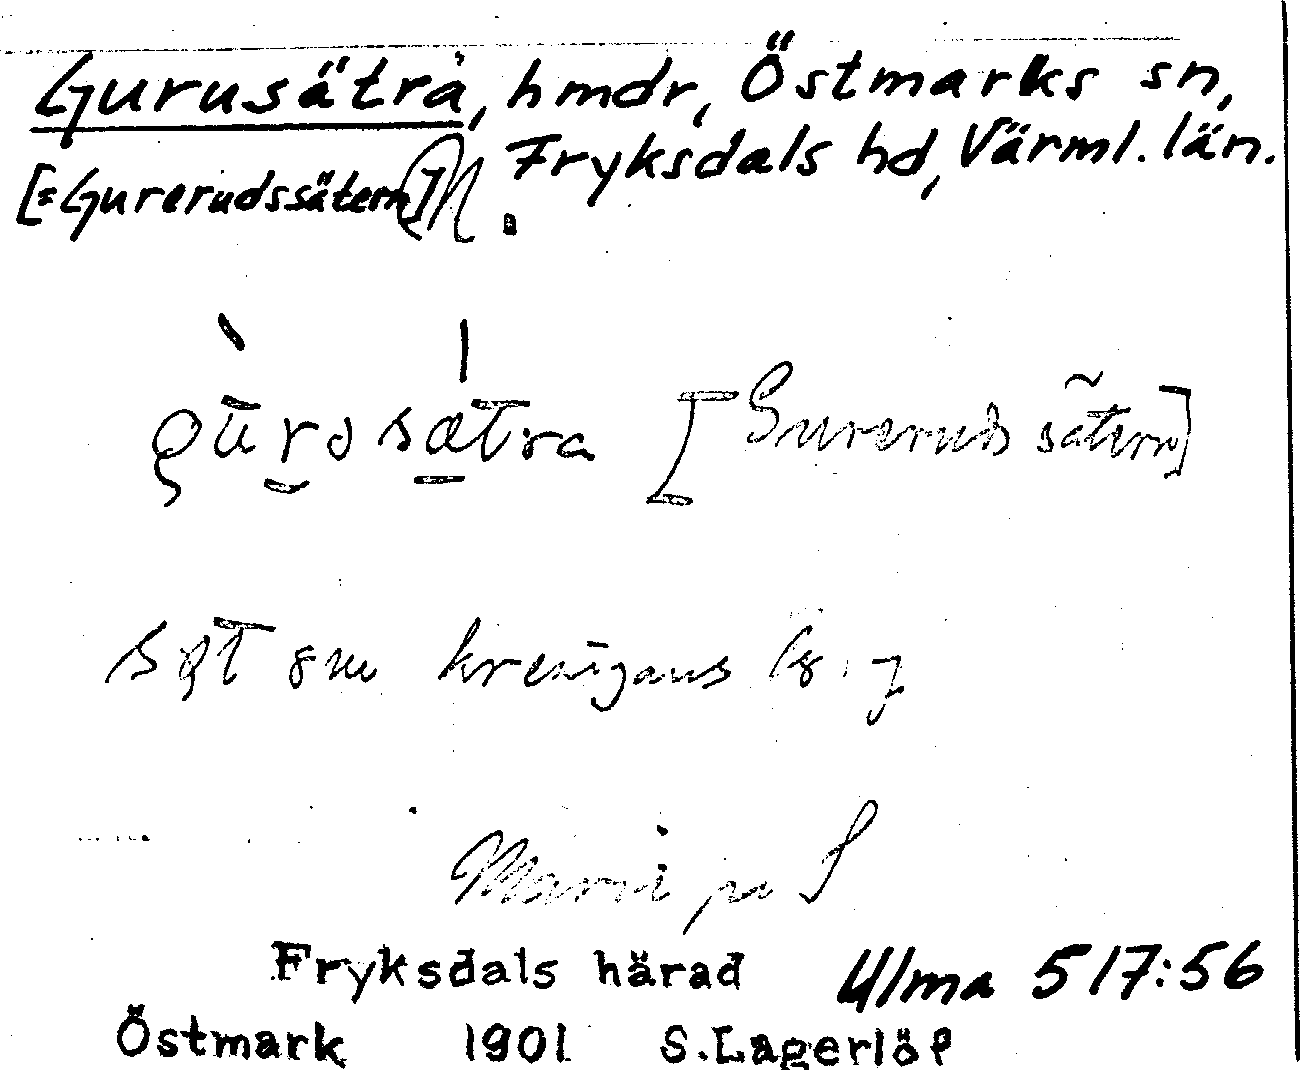 Gurusätra, hmdr, Östmarks sn,
Fryksdals hd, Värml. län.
[=Gurerudssätern]
gùrosætra [Gurerudssätern]
Marri på S
Fryksdals härad Ulma 517:56
Östmark 1901 S.Lagerlöf